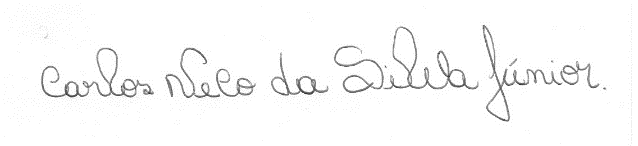 Carlos Neco da Silva Júnior.